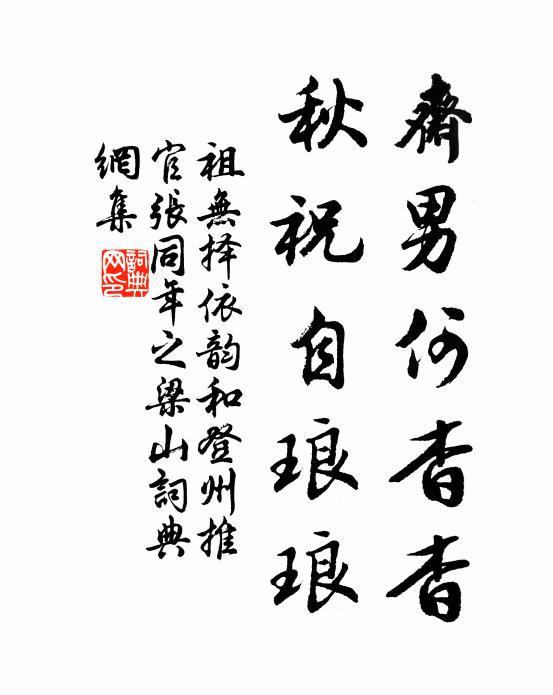 齋男何杳杳
秋祝自琅琅
祖無择依韵和登州推
官張同年之梁山詞典
網集
詞典
网印